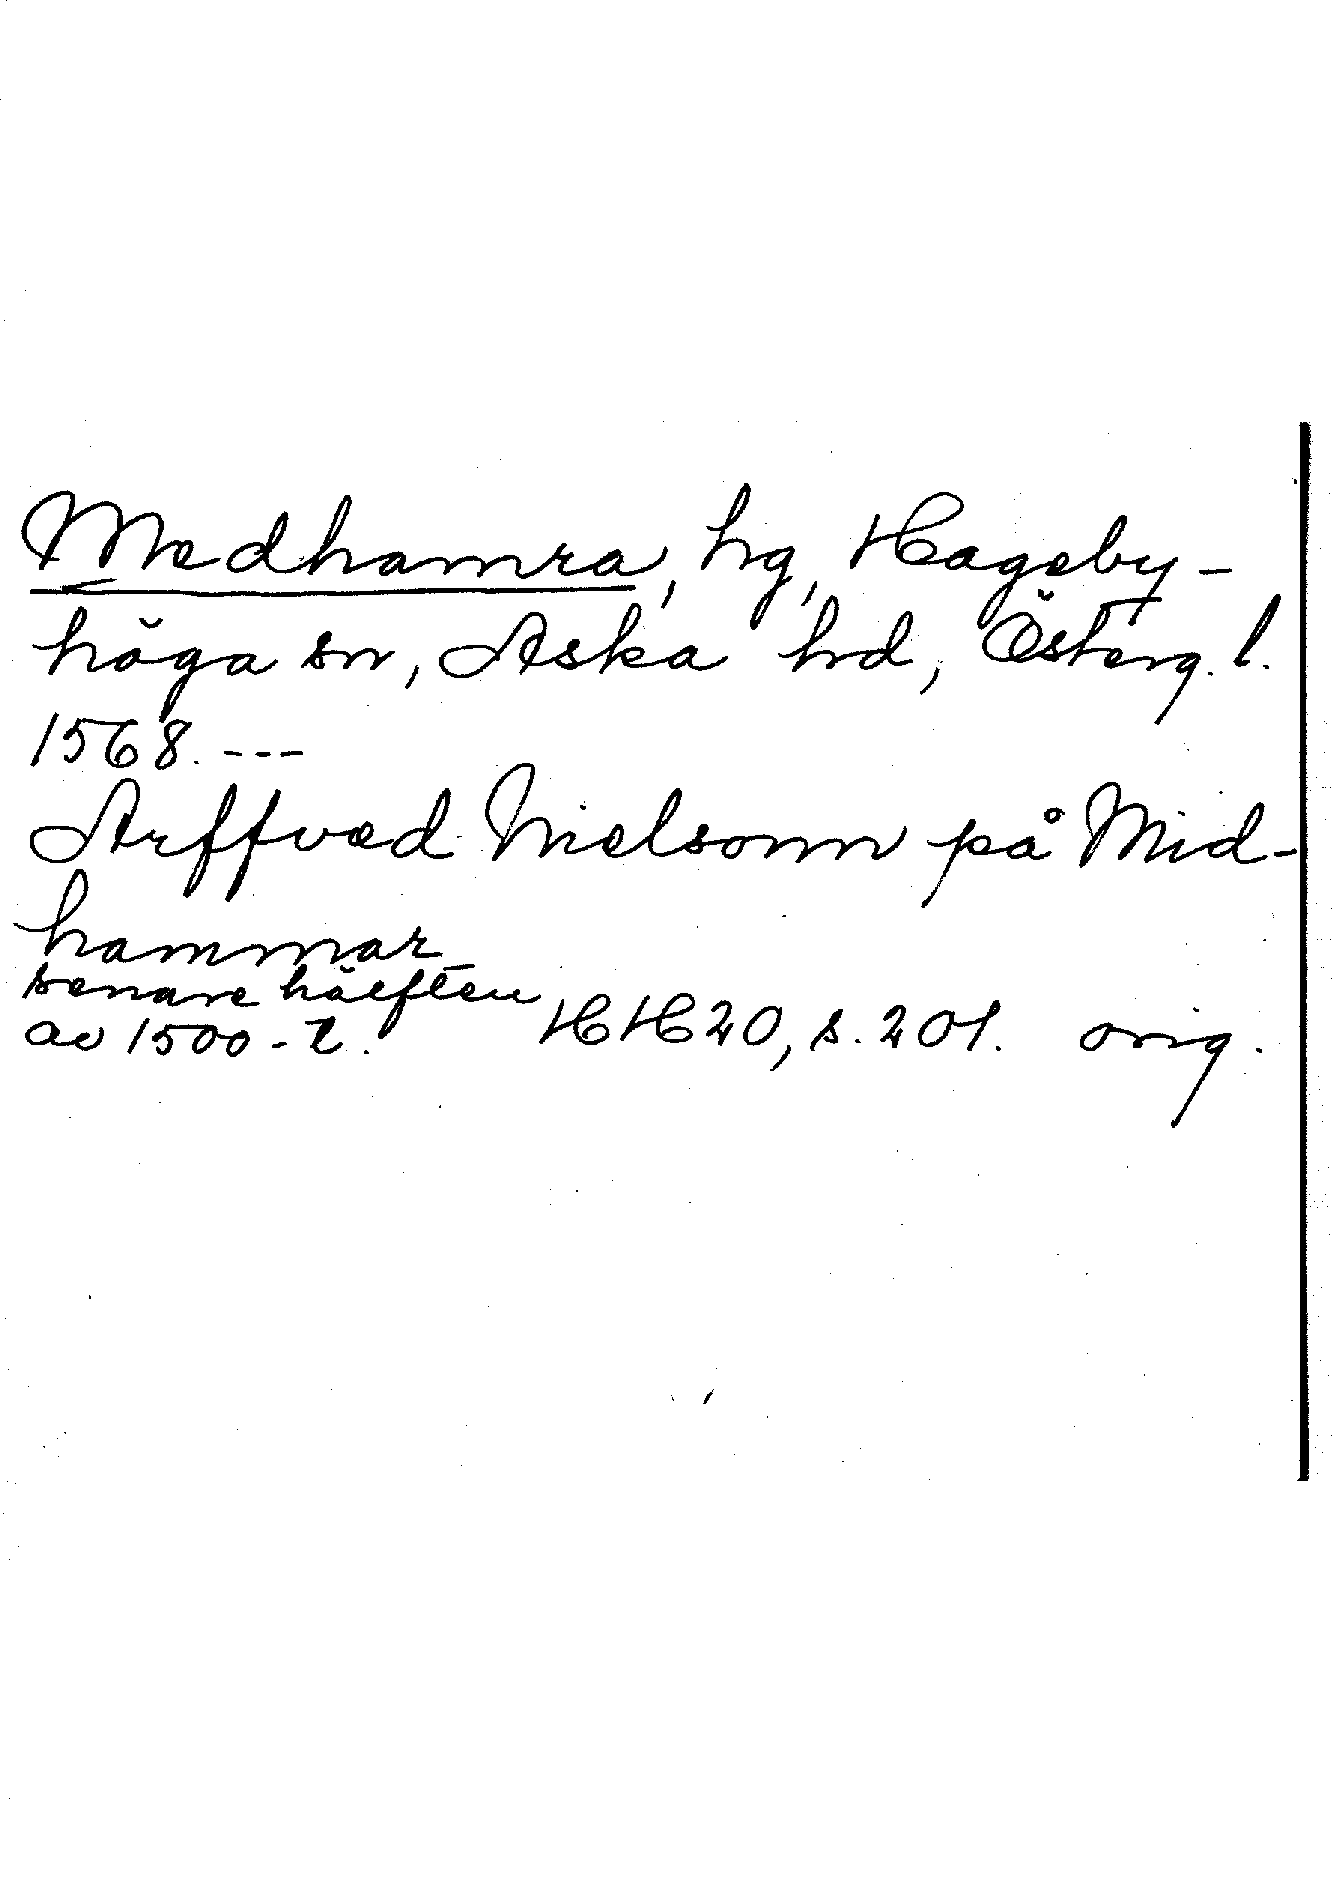 Medhamra, hg, Hageby-
höga sn, Aska hd, Österg. l.
1568. ---
Arffved Nielsonn på Mid-
hammar
senare hälften
av 1500-t. HH20, s. 201. orig.